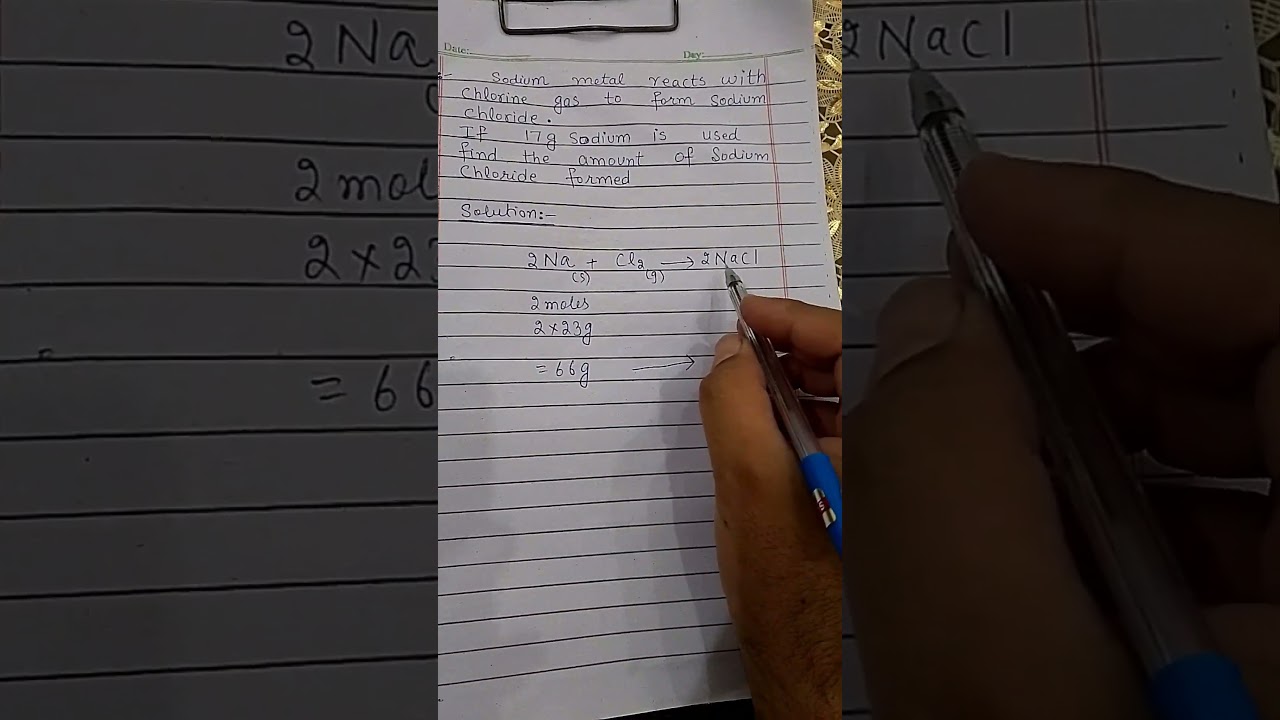 Date:
Day:
:- Sodium metal reacts with
Chlorine gas to form Sodium
Chloride.
If 17g Sodium is used
find the amount of Sodium
Chloride formed
Solution:-
2Na + Cl2 → 2NaCl
(s) (g)
2 moles
2×23g
= 66g →